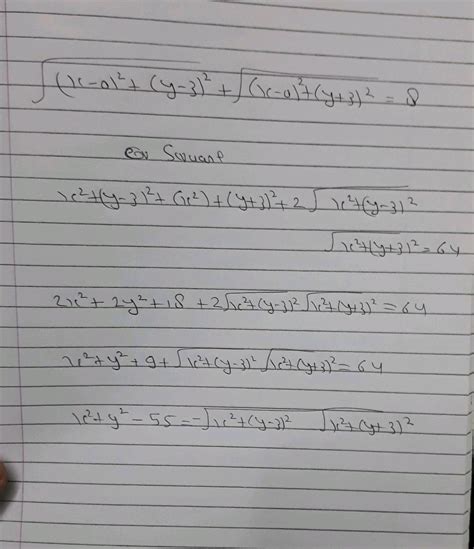 √(x-0)²+(y-3)² + √(x-0)²+(y+3)² = 8
Square
x²+(y-3)²+(x²)+(y+3)²+2√x²+(y-3)²
√x²+(y+3)² = 64
2x²+2y²+18+2√x²+(y-3)² √x²+(y+3)² = 64
x²+y²+9+√x²+(y-3)² √x²+(y+3)² = 64
x²+y²-55=-√x²+(y-3)² √x²+(y+3)²